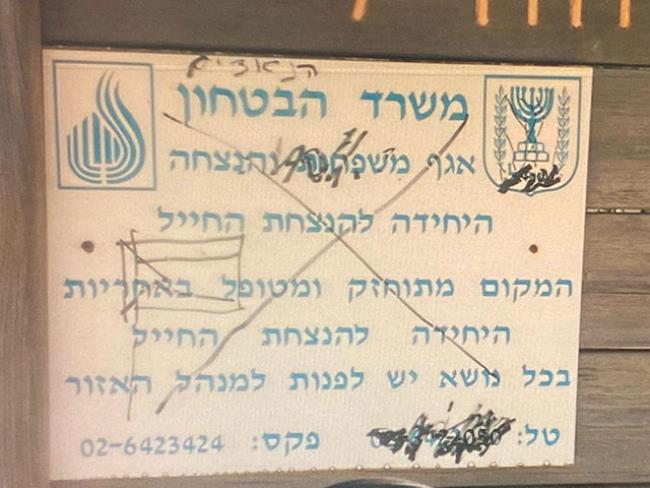 משרד הבטחון
אגף משפחות והנצחה
היחידה להנצחת החייל
המקום מתוחזק ומטופל באחריות
היחידה להנצחת החייל
בכל נושא יש לפנות למנהל האזור
טל: פקס: 02-6423424